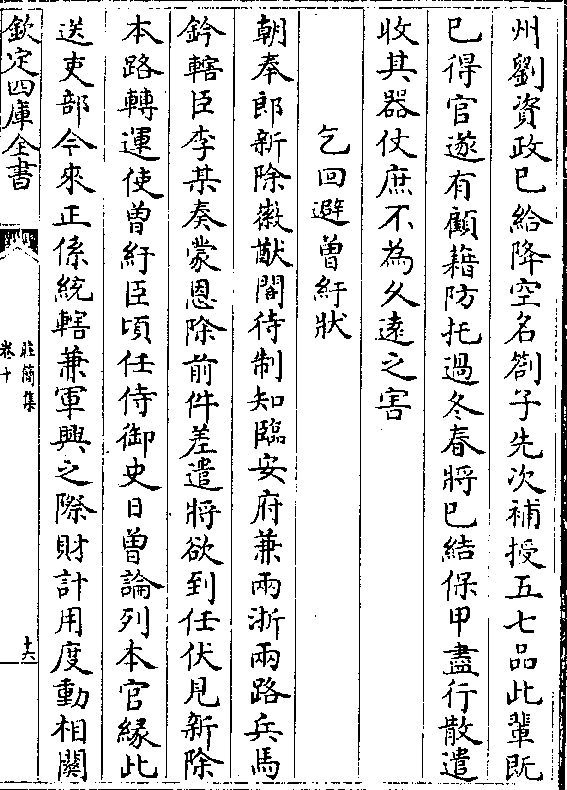 州劉資政已給降空名劄子先次補授五七品此輩既
已得官遂有顧藉防托過冬春將已結保甲盡行散遣
收其器仗庶不為久遠之害
乞回避曽紆狀
朝奉郎新除徽猷閣待制知臨安府兼兩浙兩路兵馬
鈐轄臣李某奏蒙恩除前件差遣將欲到任伏見新除
本路轉運使曽紆臣頃任侍御史日曽論列本官縁此
送吏部今來正係統轄兼軍興之際財計用度動相關
欽定四庫全書
莊簡集
卷十
十六